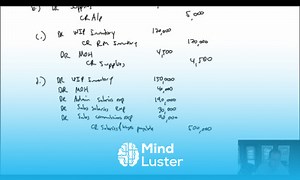 CR A/p 5,000
c.) DR WIP Inventory 120,000
CR RM Inventory 120,000
DR MOH 4,500
CR Supplies 4,500
d.) DR WIP Inventory 150,000
DR MOH
DR Admin Salaries exp
DR Sales Salaries exp
DR Sales commissions exp
CR Salaries/ payable 500,000
Mind
Luster